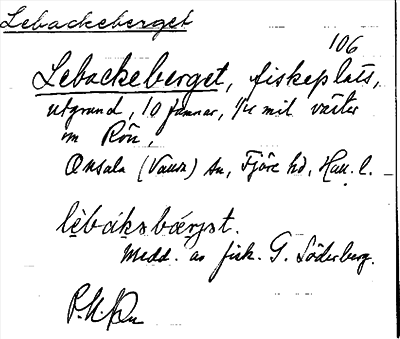 Lebackeberget
106
Lebackeberget, fiskeplats,
utgrund, 10 famnar, 1/4 mil väster
om Rön,
Onsala (Vallda) sn, Fjäre hd, Hall. l.
lèbáksbærjət.
Medd. av fisk. G. Söderberg.